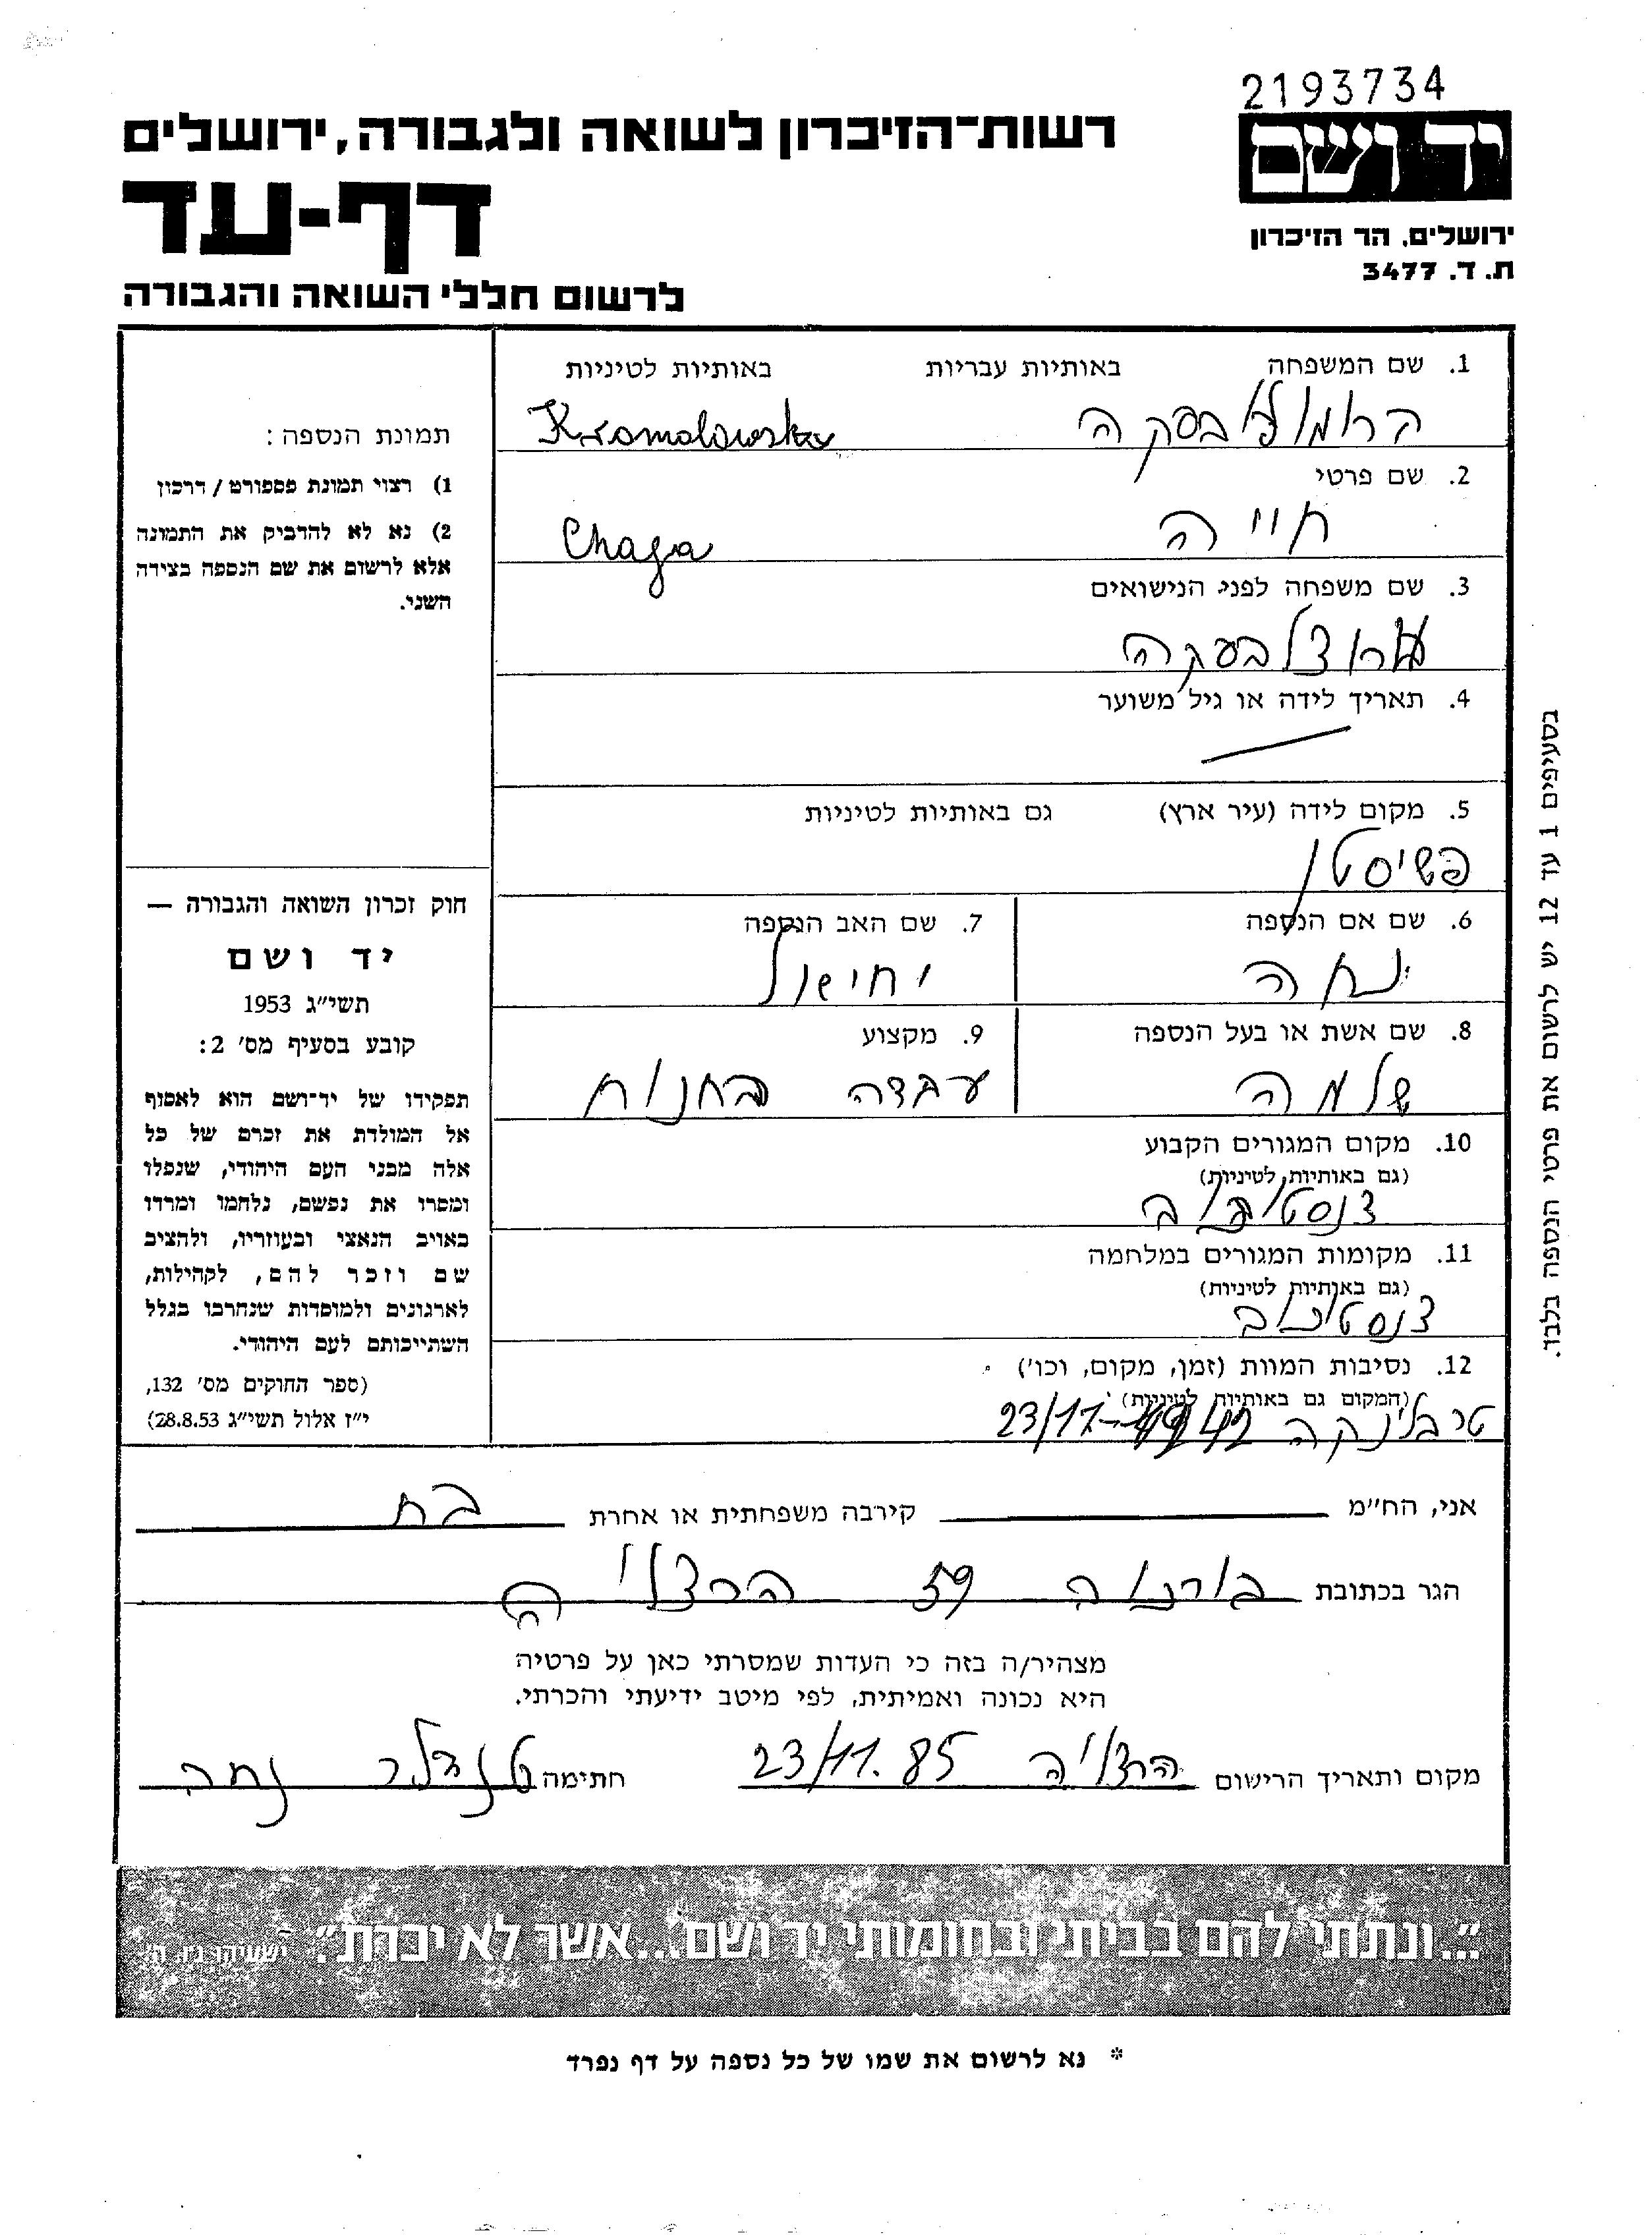 2193734
יד ושם
ירושלים, הר הזיכרון
ת. ד. 3477
רשות־הזיכרון לשואה ולגבורה, ירושלים
דף-עד
לרשום חללי השואה והגבורה
1. שם המשפחה באותיות עבריות באותיות לטיניות
2. שם פרטי
חייה Chaja
3. שם משפחה לפני הנישואים
4. תאריך לידה או גיל משוער
5. מקום לידה (עיר ארץ) גם באותיות לטיניות
6. שם אם הנספה
7. שם האב הנספה
8. שם אשת או בעל הנספה
שלמה
9. מקצוע
עבדה בחנות
10. מקום המגורים הקבוע
(גם באותיות לטיניות)
11. מקומות המגורים במלחמה
(גם באותיות לטיניות)
12. נסיבות המוות (זמן, מקום, וכו')
(המקום גם באותיות לטיניות)
טרבלינקה
תמונת הנספה:
1) רצוי תמונת פספורט / דרכון
2) נא לא להדביק את התמונה
אלא לרשום את שם הנספה בצידה
השני.
חוק זכרון השואה והגבורה —
יד ושם
תשי״ג 1953
קובע בסעיף מס' 2:
תפקידו של יד־ושם הוא לאסוף
אל המולדת את זכרם של כל
אלה מבני העם היהודי, שנפלו
ומסרו את נפשם, נלחמו ומרדו
באויב הנאצי ובעוזריו, ולהציב
שם וזכר להם, לקהילות,
לארגונים ולמוסדות שנחרבו בגלל
השתייכותם לעם היהודי.
(ספר החוקים מס' 132,
י״ז אלול תשי״ג 28.8.53)
בסעיפים 1 עד 12 יש לרשום את פרטי הנספה בלבד.
אני, הח״מ קירבה משפחתית או אחרת בת
הגר בכתובת 59 הרצליה
מצהיר/ה בזה כי העדות שמסרתי כאן על פרטיה
היא נכונה ואמיתית, לפי מיטב ידיעתי והכרתי.
מקום ותאריך הרישום הרצליה 23/11.85 חתימה טנדלר נחה
״...ונתתי להם בביתי ובחומותי יד ושם...אשר לא יכרת״. ישעיהו נ״ו, ה׳
* נא לרשום את שמו של כל נספה על דף נפרד